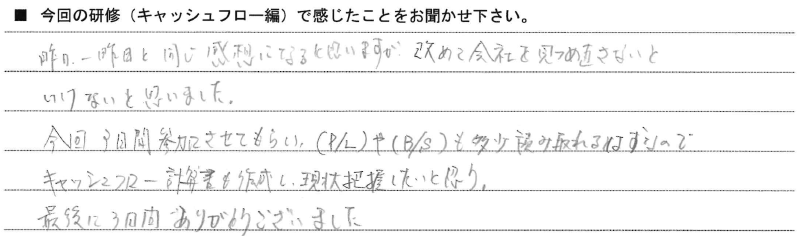 ■ 今回の研修（キャッシュフロー編）で感じたことをお聞かせ下さい。
昨日、一昨日と同じ感想になると思いますが、改めて会社を見つめ直さないと
いけないと思いました。
今回3日間参加させてもらい、(P/L)や(B/S)も多少読み取れるはずなので
キャッシュフロー計算書も作成し、現状把握したいと思う。
最後に3日間ありがとうございました